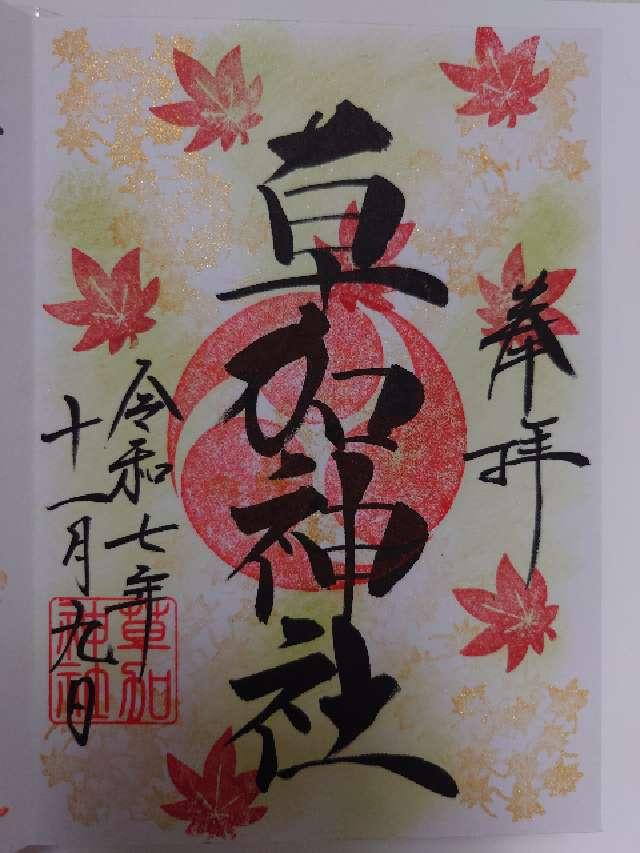 奉拝
草加神社
令和七年
十一月九日
草加
神社